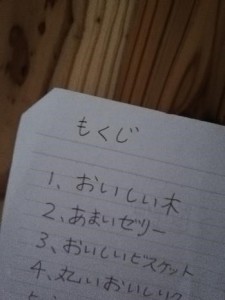 もくじ
1、おいしい木
2、あまいゼリー
3、おいしいビスケット
4、丸いおいしい